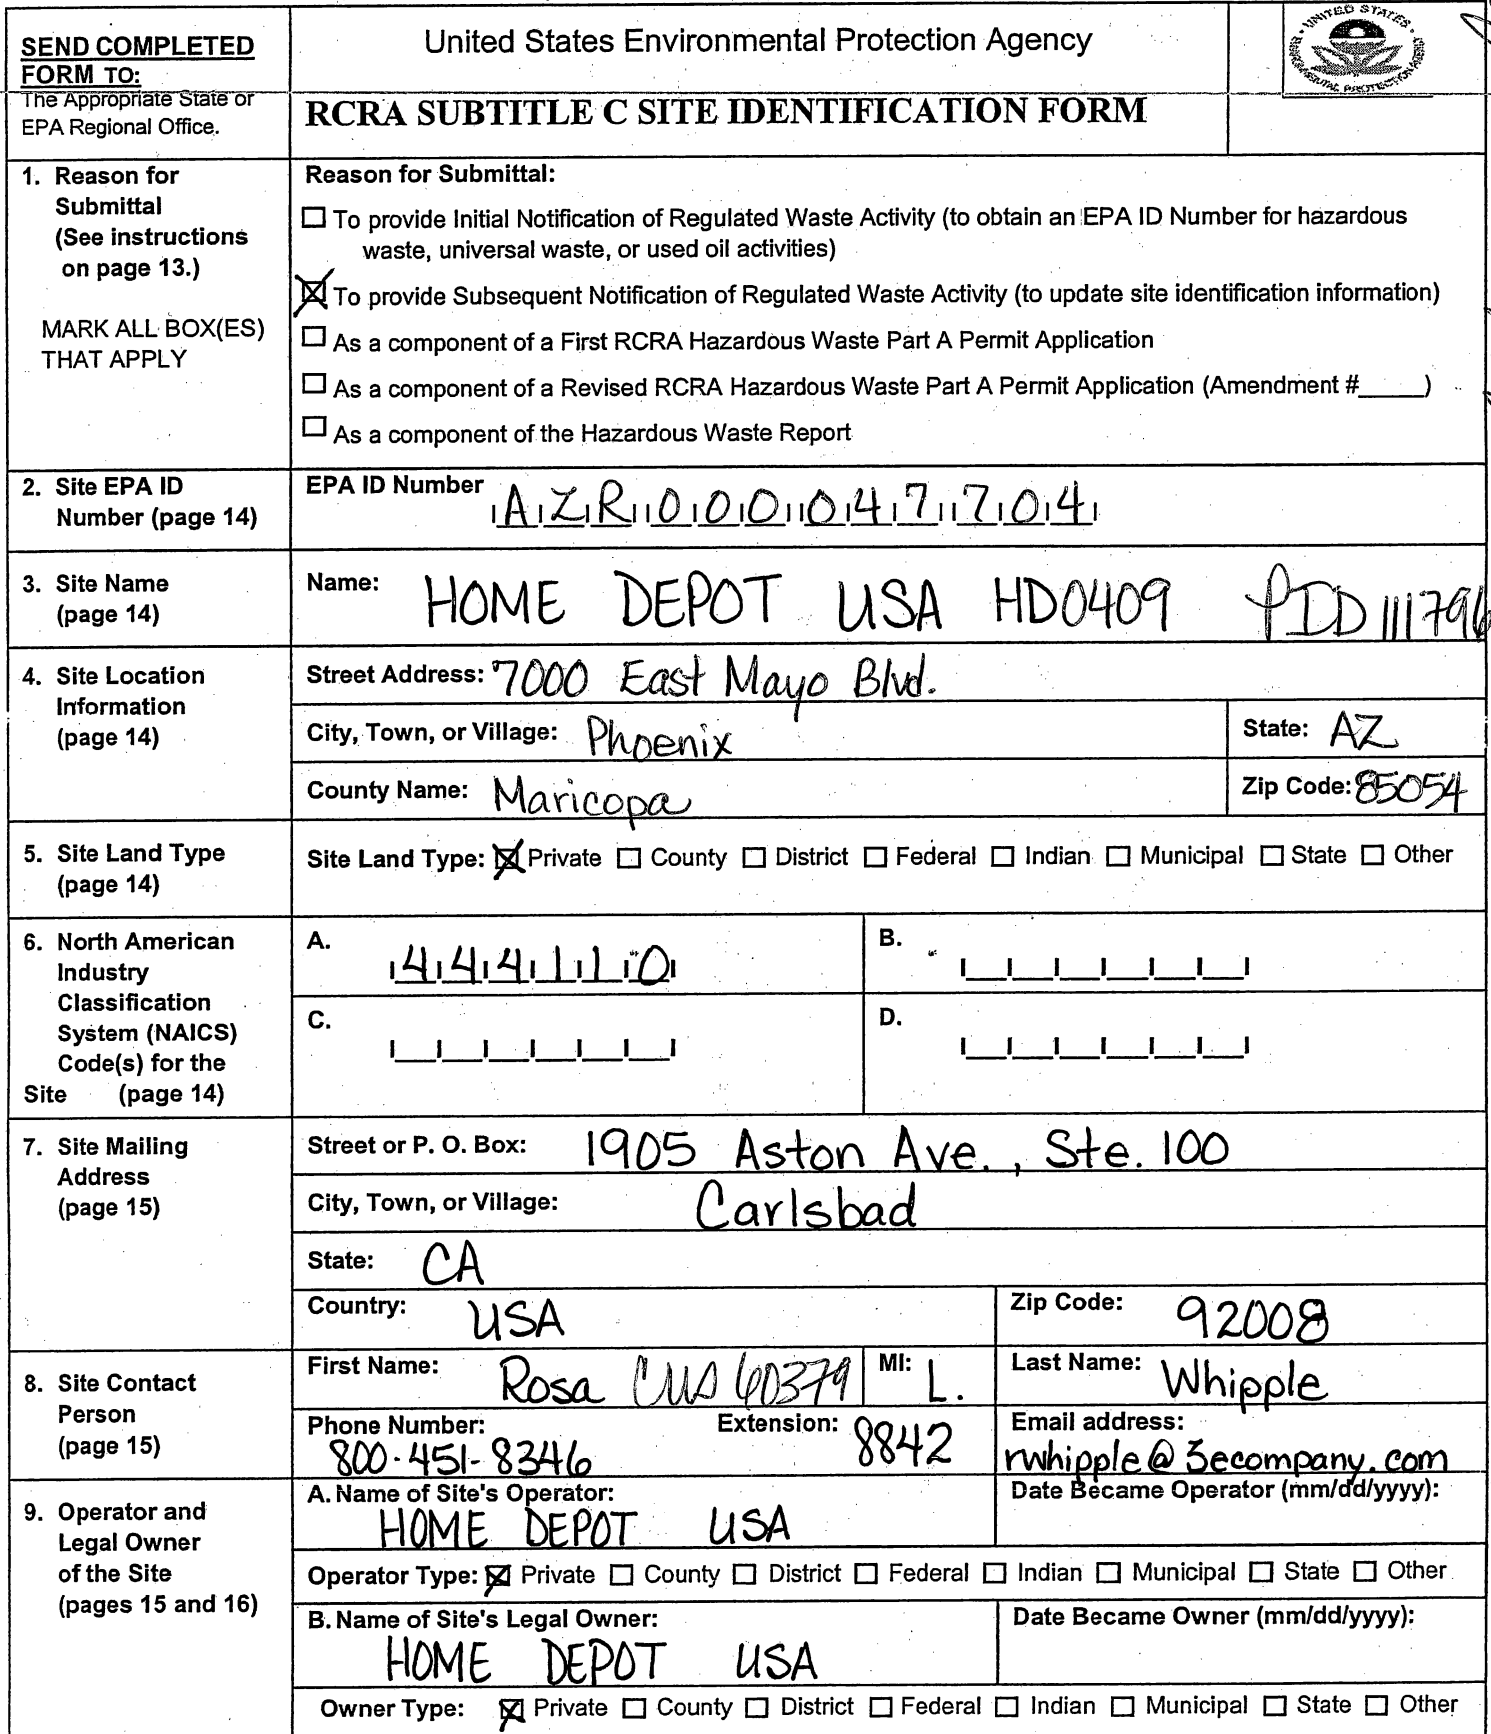 SEND COMPLETED
FORM TO:
The Appropriate State or
EPA Regional Office.
United States Environmental Protection Agency
RCRA SUBTITLE C SITE IDENTIFICATION FORM
UNITED STATES
ENVIRONMENTAL PROTECTION AGENCY
1. Reason for
Submittal
(See instructions
on page 13.)
MARK ALL BOX(ES)
THAT APPLY
Reason for Submittal:
☐ To provide Initial Notification of Regulated Waste Activity (to obtain an EPA ID Number for hazardous
waste, universal waste, or used oil activities)
☒ To provide Subsequent Notification of Regulated Waste Activity (to update site identification information)
☐ As a component of a First RCRA Hazardous Waste Part A Permit Application
☐ As a component of a Revised RCRA Hazardous Waste Part A Permit Application (Amendment #_____)
☐ As a component of the Hazardous Waste Report
2. Site EPA ID
Number (page 14)
EPA ID Number AZR000047704
3. Site Name
(page 14)
Name: HOME DEPOT USA HD0409 PDD 111796
4. Site Location
Information
(page 14)
Street Address: 7000 East Mayo Blvd.
City, Town, or Village: Phoenix State: AZ
County Name: Maricopa Zip Code: 85054
5. Site Land Type
(page 14)
Site Land Type: ☒ Private ☐ County ☐ District ☐ Federal ☐ Indian ☐ Municipal ☐ State ☐ Other
6. North American
Industry
Classification
System (NAICS)
Code(s) for the
Site (page 14)
A. 444110 B.
C. D.
7. Site Mailing
Address
(page 15)
Street or P. O. Box: 1905 Aston Ave., Ste. 100
City, Town, or Village: Carlsbad
State: CA
Country: USA Zip Code: 92008
8. Site Contact
Person
(page 15)
First Name: Rosa CUS 60379 MI: L. Last Name: Whipple
Phone Number: 800-451-8346 Extension: 8842 Email address: rwhipple@3ecompany.com
9. Operator and
Legal Owner
of the Site
(pages 15 and 16)
A. Name of Site's Operator: Date Became Operator (mm/dd/yyyy):
HOME DEPOT USA
Operator Type: ☒ Private ☐ County ☐ District ☐ Federal ☐ Indian ☐ Municipal ☐ State ☐ Other
B. Name of Site's Legal Owner: Date Became Owner (mm/dd/yyyy):
HOME DEPOT USA
Owner Type: ☒ Private ☐ County ☐ District ☐ Federal ☐ Indian ☐ Municipal ☐ State ☐ Other